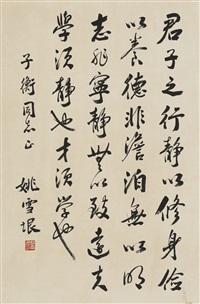 君子之行静以修身俭
以养德非澹泊無以明
志非寧静無以致遠夫
學须静也才须学也
子衡同志正
姚雪垠